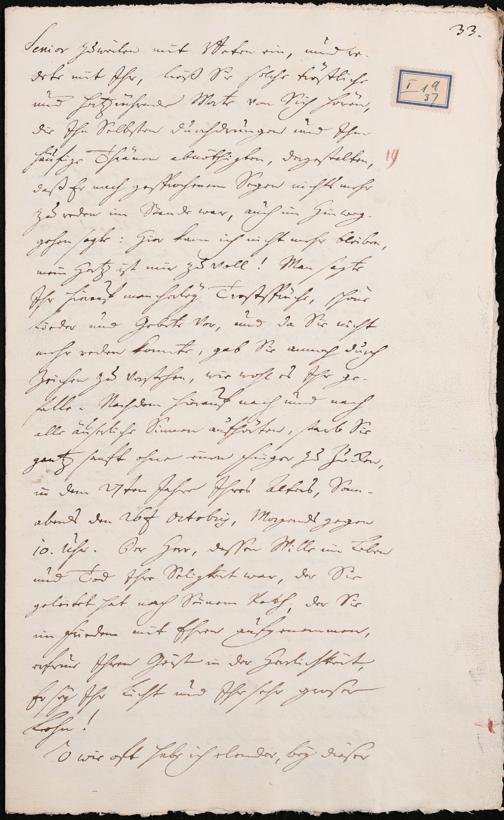 33.
I 19
37
19
Senior zuweilen mit Beten ein, und re-
dete mit Ihr, ließ Sie solche tröstliche
und hertzrührende Worte von Sich hören,
die Ihn Selbsten durchdrungen und Ihm
häufige Thränen abnöthigten, dergestalten,
daß Er nach gesprochenem Segen nichts mehr
zu reden im Stande war, auch im Hinweg-
gehen sagte: Hier kann ich nicht mehr bleiben,
mein Hertz ist mir zu voll! Man sagte
Ihr hierauf mancherley Trostsprüche, schöne
Lieder und Gebete vor, und da Sie nicht
mehr reden konnte, gab Sie annoch durch
Zeichen zu verstehen, wie wohl es Ihr ge-
falle. Nachdem hierauf nach und nach
alle äuserliche Sinnen aufhörten, starb Sie
gantz sanft ohne einen Finger zu zucken,
in dem 27sten Jahre Ihres Alters, Sonn-
abends den 26t Octobris, Morgends gegen
10. Uhr. Der Herr, dessen Wille im Leben
und Tod Ihre Seligkeit war, der Sie
geleitet hat nach Seinem Rath, der Sie
im Frieden mit Ehren aufgenommen,
erfreue Ihren Geist in der Herrlichkeit,
Er sey Ihr Licht und Ihr sehr groser
Lohn!
O wie oft habe ich elender, bey dieser